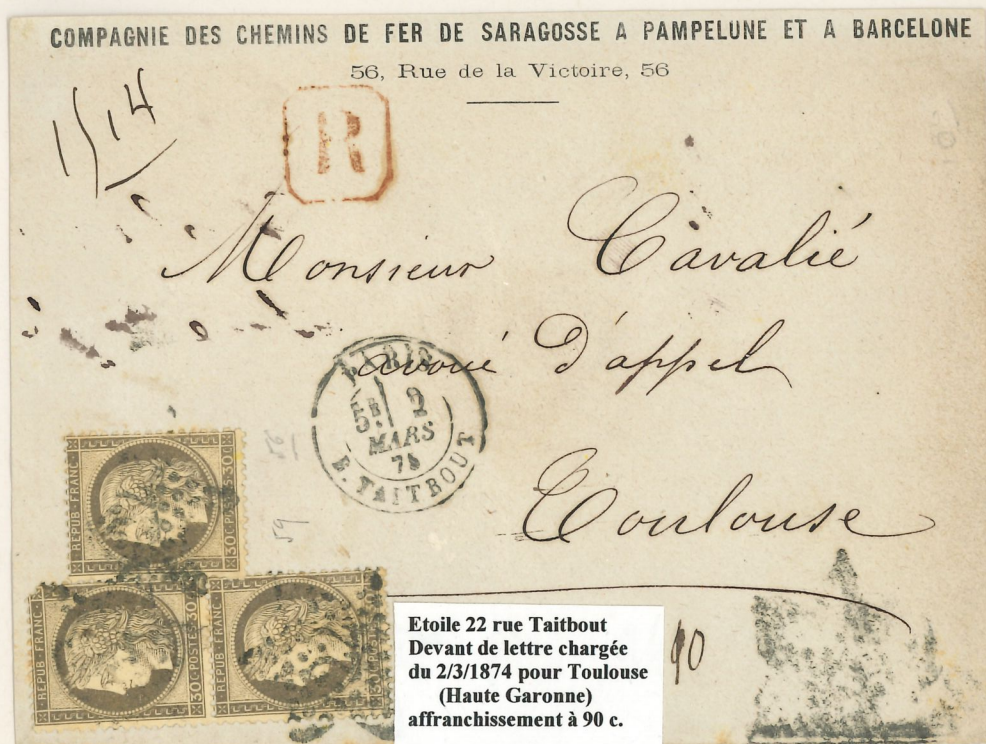 COMPAGNIE DES CHEMINS DE FER DE SARAGOSSE A PAMPELUNE ET A BARCELONE
56, Rue de la Victoire, 56
R
Monsieur Cavalié
avoué d'appel
Toulouse
PARIS
5E 2
MARS
R. TAITBOUT
REPUB·FRANC·
30C·POSTES·30C
REPUB·FRANC·
30C·POSTES·30C
REPUB·FRANC·
30C·POSTES·30C
59
Etoile 22 rue Taitbout
Devant de lettre chargée
du 2/3/1874 pour Toulouse
(Haute Garonne)
affranchissement à 90 c.